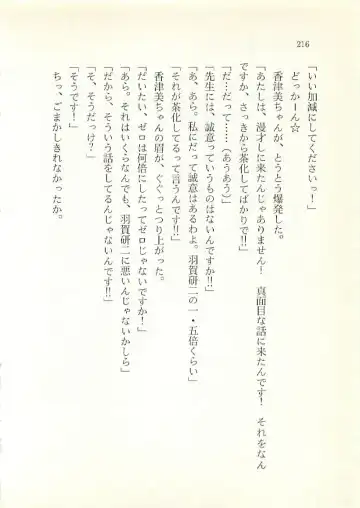 216
「いい加減にしてくださいっ！」
どっかーん☆
香津美ちゃんが、とうとう爆発した。
「あたしは、漫才しに来たんじゃありません！　真面目な話に来たんです！　それをなん
ですか、さっきから茶化してばかりで!!」
「だ…だって……（あうあう）」
「先生には、誠意っていうものはないんですか!!」
「あ、あら。私にだって誠意はあるわよ。羽賀研二の一・五倍くらい」
「それが茶化してるって言うんです!!」
香津美ちゃんの眉が、ぐぐっとつり上がった。
「だいたい、ゼロは何倍にしたってゼロじゃないですか！」
「あら。それはいくらなんでも、羽賀研二に悪いんじゃないかしら」
「だから、そういう話をしてるんじゃないんです!!」
「そ、そうだっけ？」
「そうです！」
ちっ、ごまかしきれなかったか。